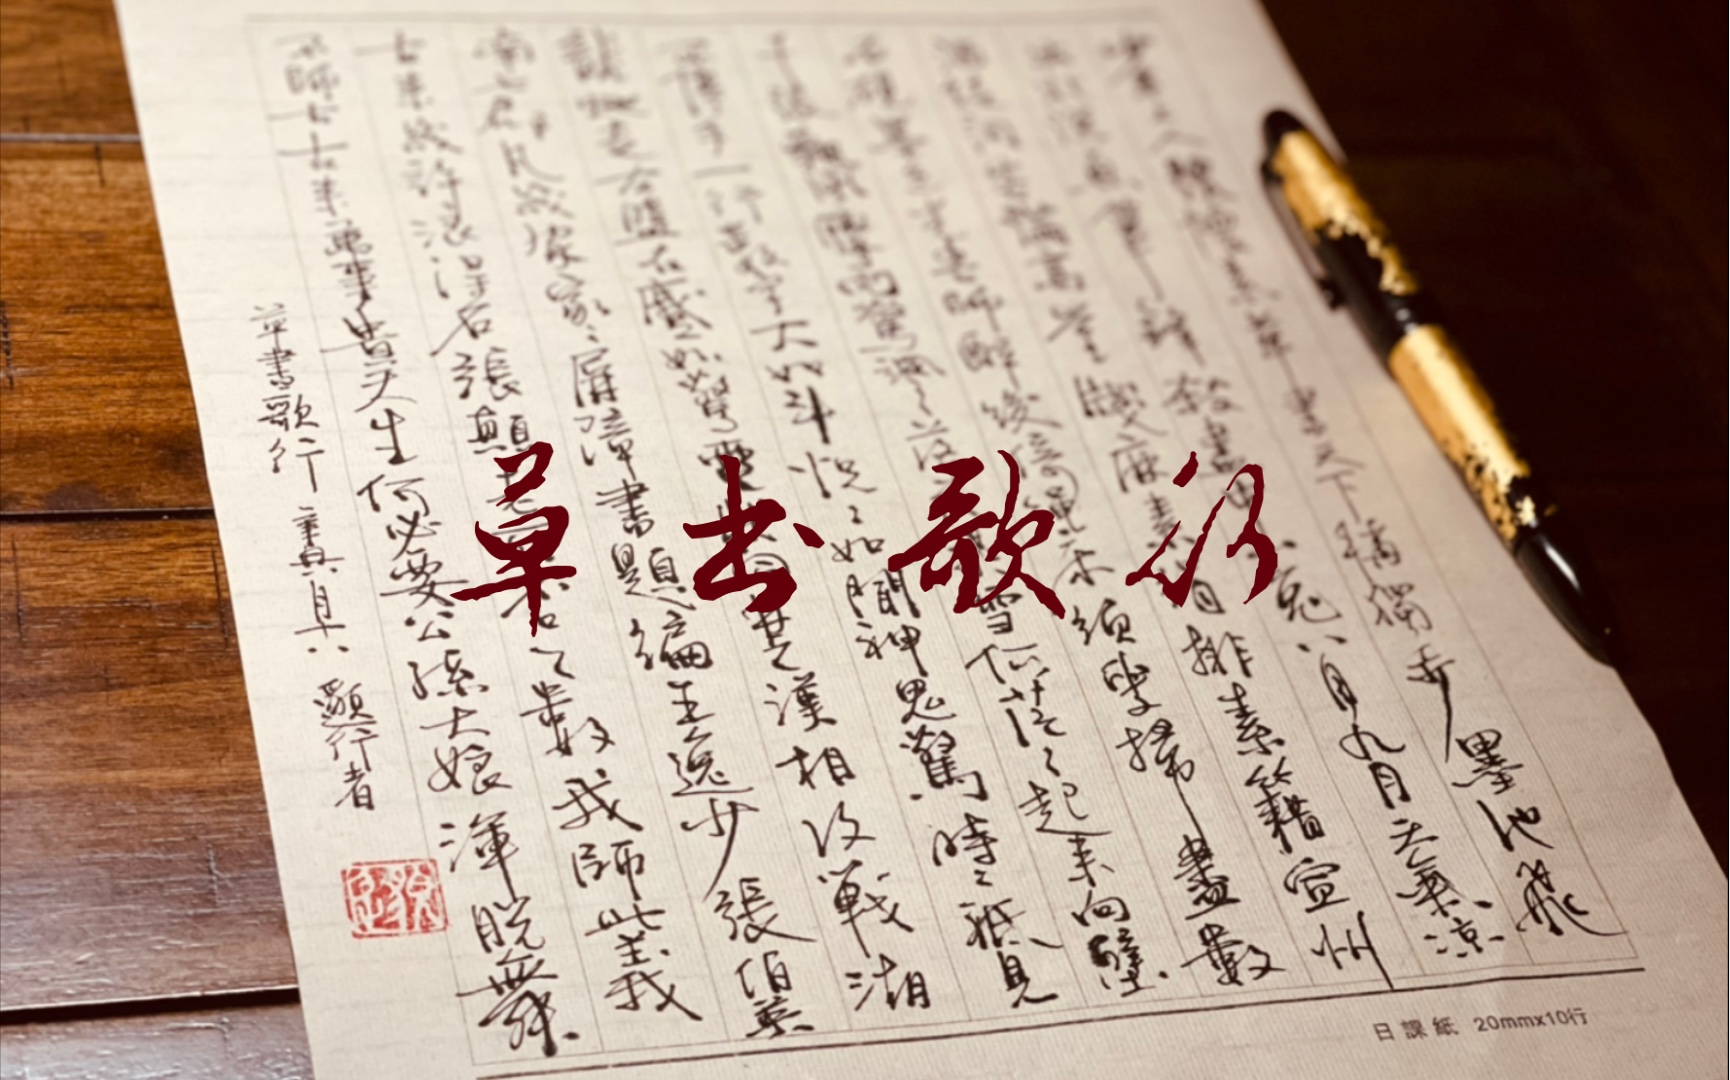 草书歌行
少年上人號懷素草書天下稱獨步墨池飛
出北溟魚筆鋒殺盡中山兔八月九月天氣涼
酒徒詞客滿高堂牋麻素絹排素箱宣州
石硯墨色光吾師醉後倚繩床須臾掃盡數
千張飄風驟雨驚颯々落花飛雪何茫々起來向壁
不停手一行數字大如斗怳々如聞神鬼驚時々祇見
龍蛇走左盤右蹙如驚電狀同楚漢相攻戰湖
南七郡凡幾家家々屏障書題遍王逸少張伯英
古來幾許浪得名張顛老死不足數我師此義
不師古古來萬事貴天生何必要公孫大娘渾脫舞
草書歌行 行者
日課紙 20mmx10行